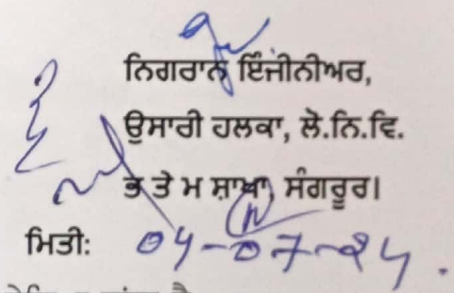 ਨਿਗਰਾਨ ਇੰਜੀਨੀਅਰ,
ਉਸਾਰੀ ਹਲਕਾ, ਲੋ.ਨਿ.ਵਿ.
ਭ ਤੇ ਮ ਸ਼ਾਖਾ, ਸੰਗਰੂਰ।
ਮਿਤੀ: 04-07-24.